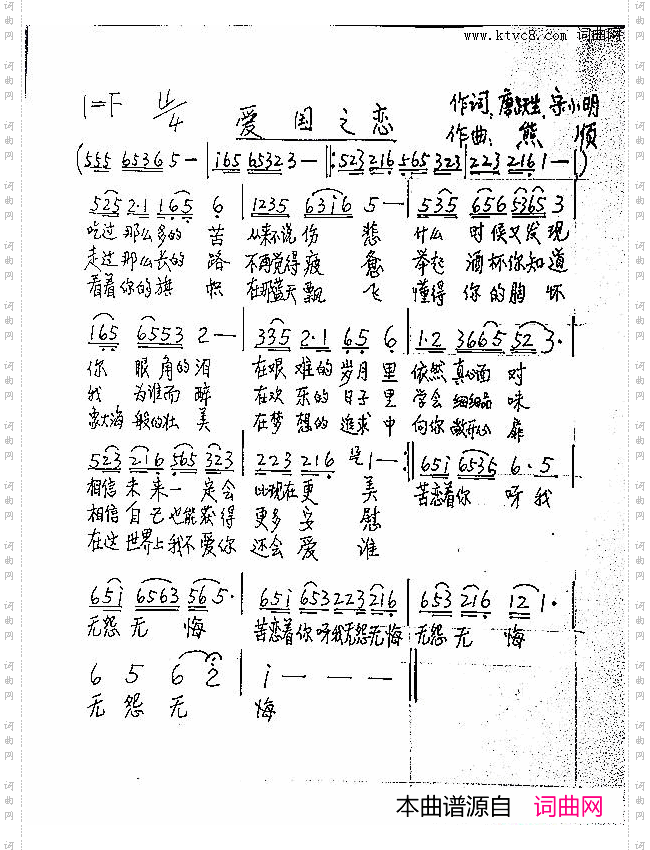 www.ktvc8.com 词曲网
1=F 4/4
爱国之恋
作词:唐跃生、宋小明
作曲: 熊 顺
(555 6536 5 — | i65 6532 3 — |: 523 216 565 323 | 223 216 1 — )
525 2·1 165 6 | 1235 6316 5 — | 535 656 5365 3
吃过 那么多的 苦 从来不说 伤 悲 什么 时候又发现
走过 那么长的 路 不再觉得 疲 惫 举起 酒杯你知道
看着 你的旗 帜 在那蓝天 飘 飞 懂得 你的胸 怀
165 6553 2 — | 335 2·1 65 6 | 1·2 36665 52 3·
你 眼角的泪 在艰难的岁月里 依然真心面对
我 为谁而醉 在欢乐的日子里 学会细细品味
象大海般的壮美 在梦想的追求中 向你敞开心扉
523 216 565 323 | 223 216 1 — :| 65i 6535 6·5
相信未来一定会 比现在更 美 苦恋着你 呀我
相信自己也能获得 更多安慰
在这世界上我不爱你 还会爱谁
65i 6563 56 5· | 65i 653 223 216 | 653 216 12 1·
无怨无 悔 苦恋着你呀我无怨无悔 无怨无 悔
6 5 6 2 | i — — — ||
无 怨 无 悔
本曲谱源自 词曲网
词曲网